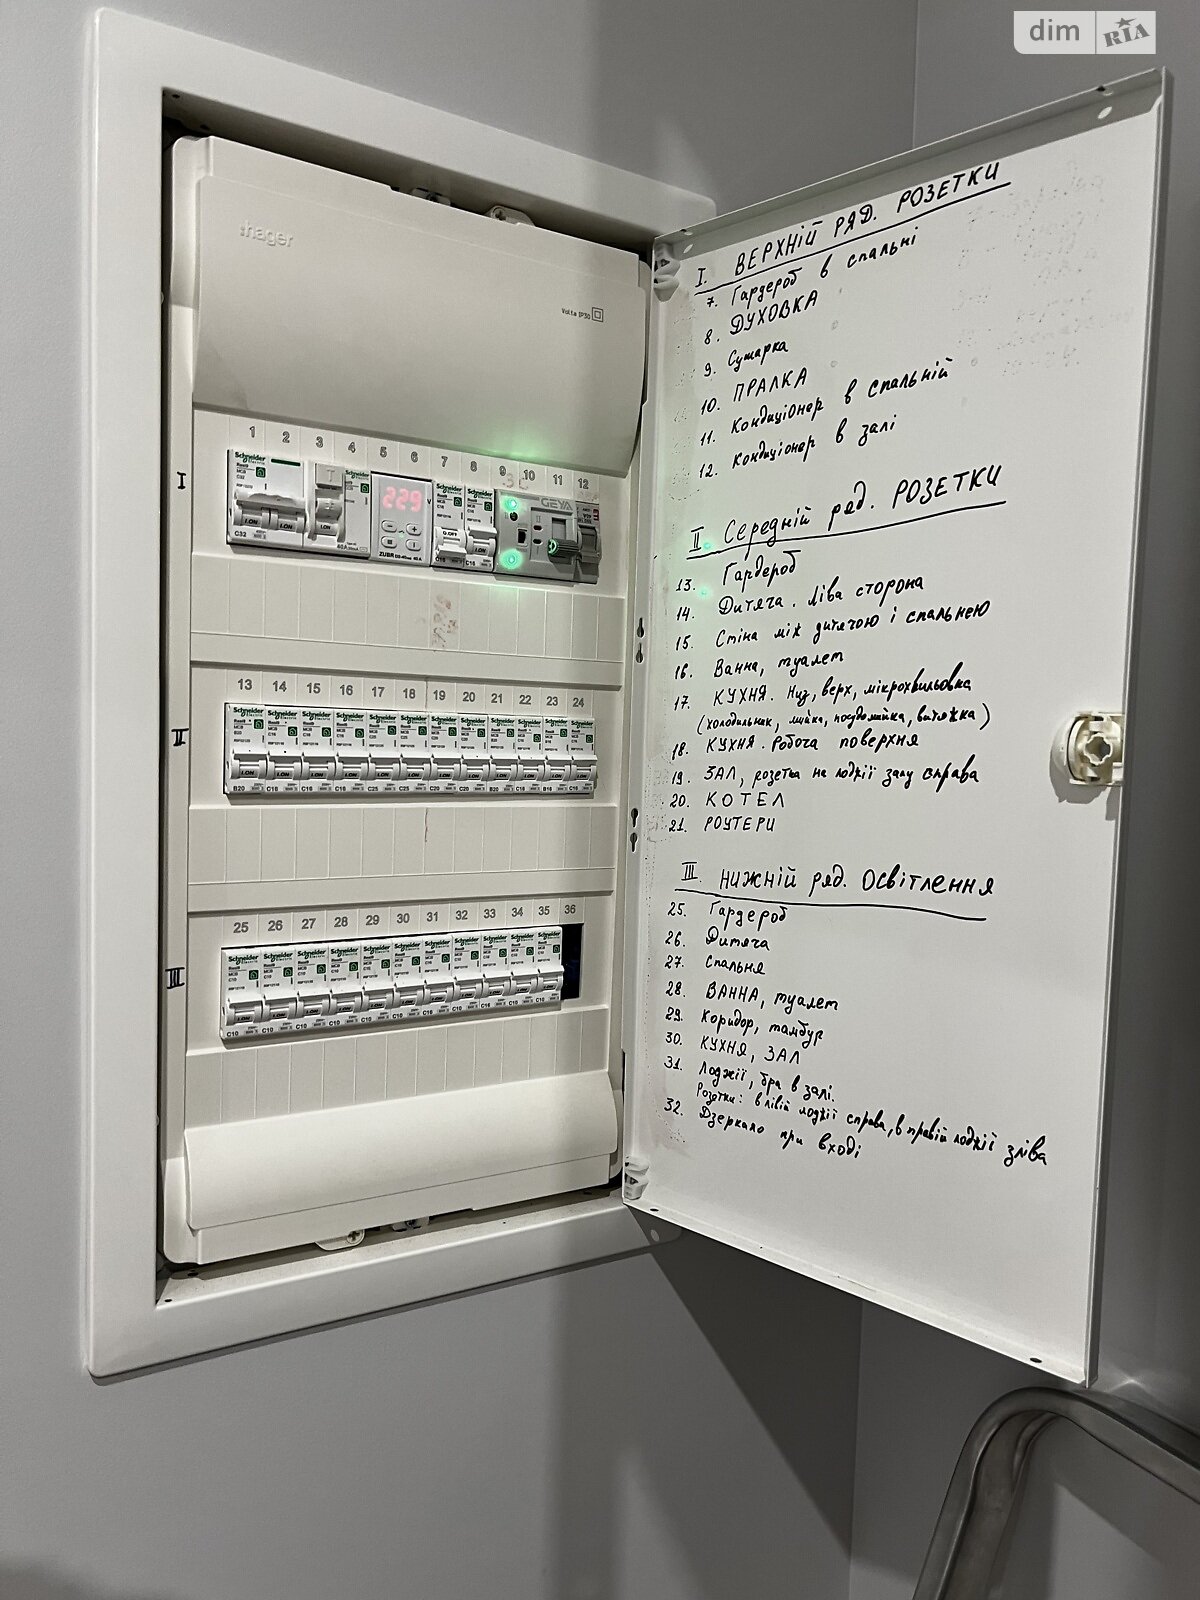 dim RIA
:hager
Volta IP30
I. ВЕРХНІЙ РЯД. РОЗЕТКИ
7. Гардероб в спальні
8. ДУХОВКА
9. Сушарка
10. ПРАЛКА
11. Кондиціонер в спальній
12. Кондиціонер в залі
II Середній ряд. РОЗЕТКИ
13. Гардероб
14. Дитяча. Ліва сторона
15. Стіна між дитячою і спальнею
16. Ванна, туалет
17. КУХНЯ. Низ, верх, мікрохвильовка
(холодильник, мийка, посудомийка, витяжка)
18. КУХНЯ. Робоча поверхня
19. ЗАЛ, розетка на лоджії залу справа
20. КОТЕЛ
21. РОУТЕРИ
III НИЖНІЙ ряд. ОСВІТЛЕННЯ
25. Гардероб
26. Дитяча
27. Спальня
28. ВАННА, туалет
29. Коридор, тамбур
30. КУХНЯ, ЗАЛ
31. Лоджії, бра в залі.
Розетки: в лівій лоджії справа, в правій лоджії зліва
32. Дзеркало при вході
I
1 2 3 4 5 6 7 8 9 10 11 12
Schneider Electric
229 V
GEYA
C32
40A
ZUBR
C16
II
13 14 15 16 17 18 19 20 21 22 23 24
Schneider Electric
B20 C16 C16 C16 C25 C25 C16 C16 B20 C16 B16 C16
III
25 26 27 28 29 30 31 32 33 34 35 36
Schneider Electric
C10 C10 C10 C10 C10 C10 C10 C10 C16 C10 C10